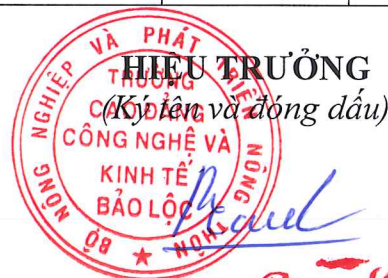 HIỆU TRƯỞNG
(Ký tên và đóng dấu)
BỘ NÔNG NGHIỆP VÀ PHÁT TRIỂN NÔNG THÔN
TRƯỜNG
CAO ĐẲNG
CÔNG NGHỆ VÀ
KINH TẾ
BẢO LỘC